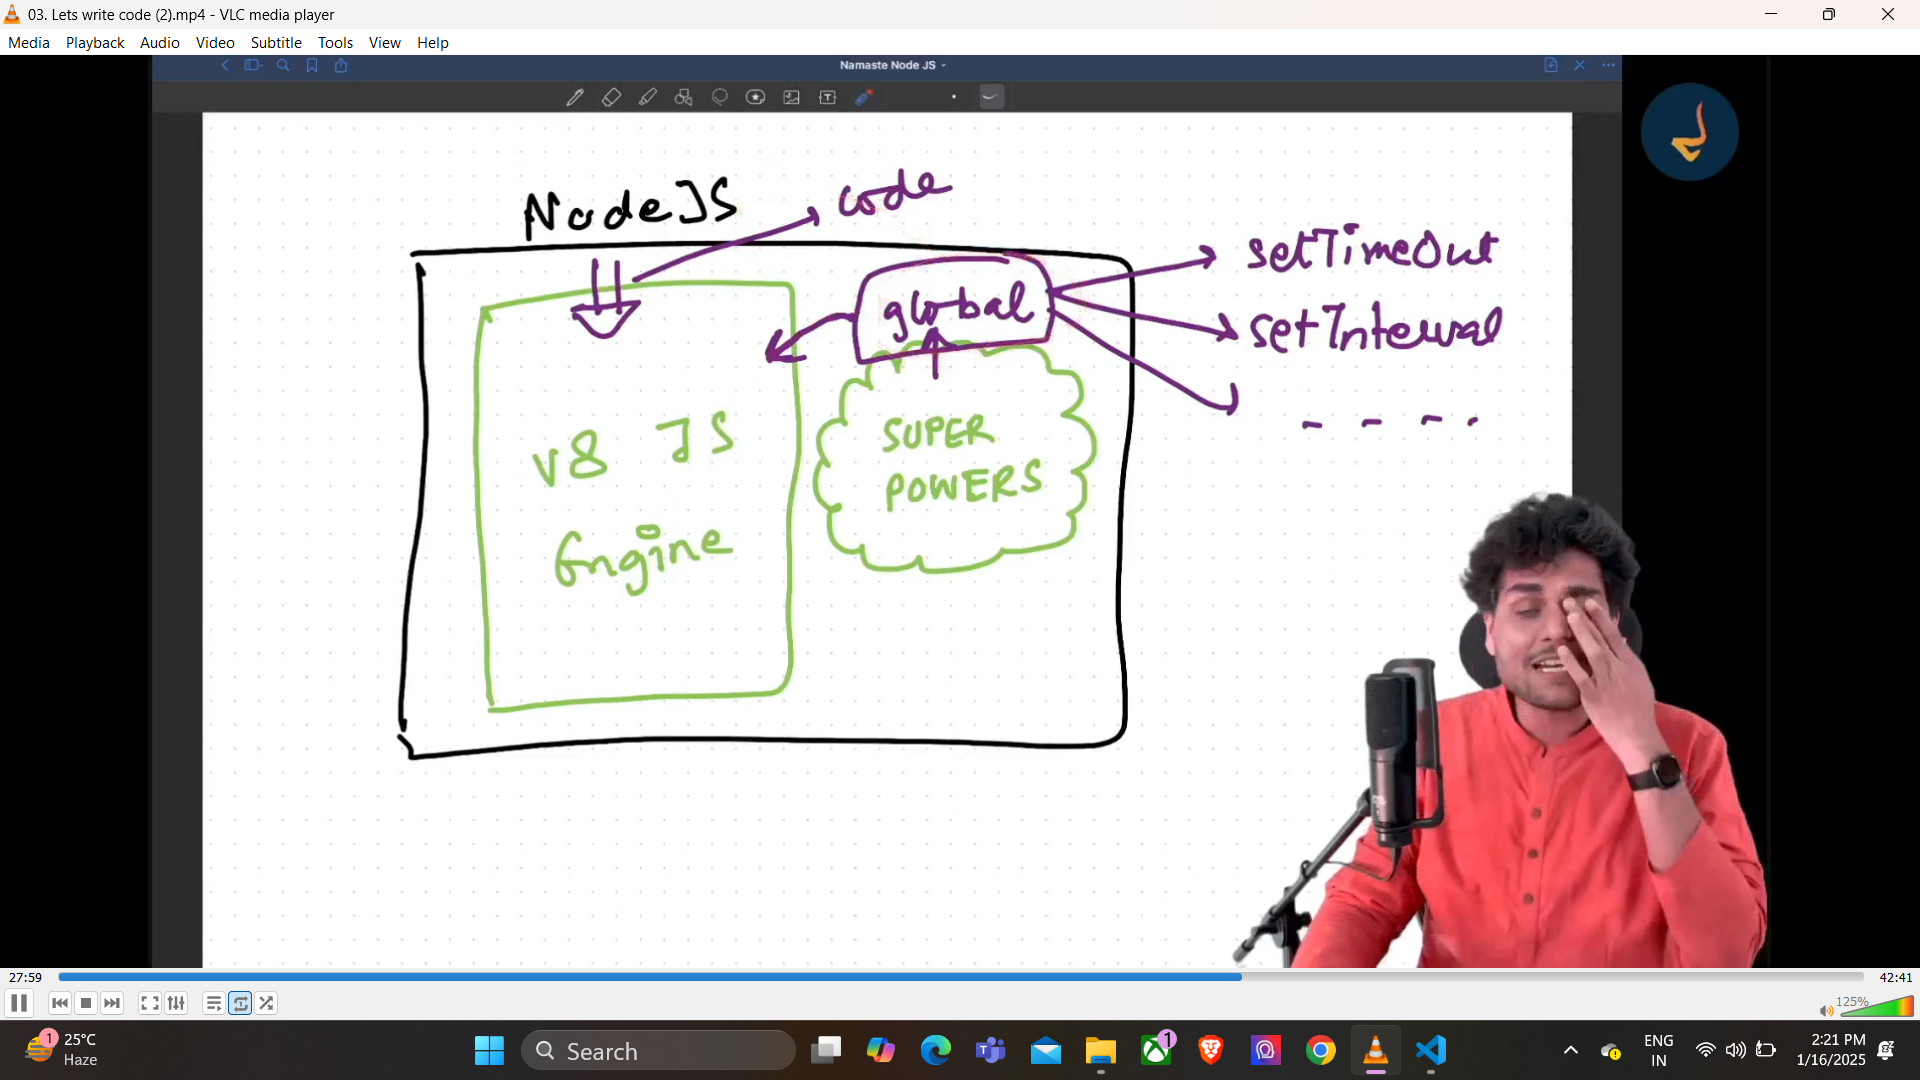 03. Lets write code (2).mp4 - VLC media player
Media Playback Audio Video Subtitle Tools View Help
Namaste Node JS
NodeJS
code
global
setTimeOut
setInterval
- - - -
SUPER
POWERS
V8 JS
Engine
27:59
42:41
125%
1
25°C
Haze
Search
1
ENG
IN
2:21 PM
1/16/2025